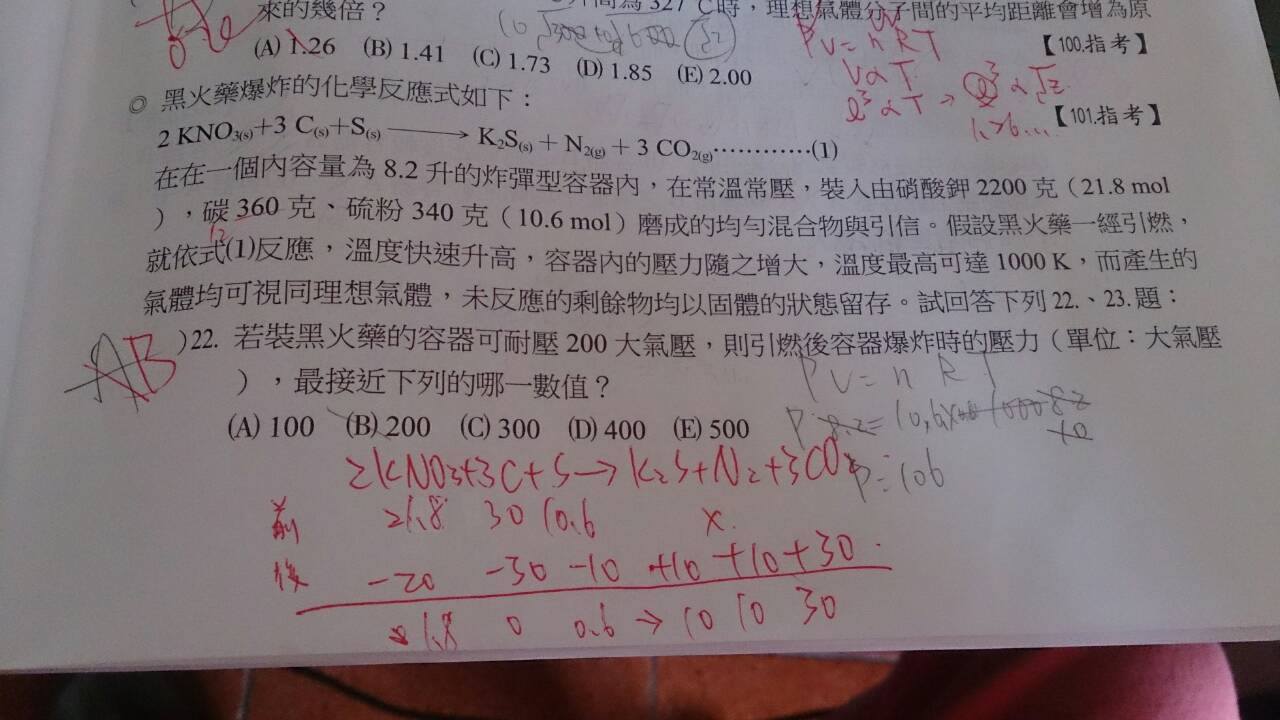 來的幾倍？
為 327 ℃時，理想氣體分子間的平均距離會增為原
(A) 1.26 (B) 1.41 (C) 1.73 (D) 1.85 (E) 2.00
【100.指考】
PV=nRT
V∝T
ℓ³∝T →
◎ 黑火藥爆炸的化學反應式如下：
【101.指考】
2 KNO3(s)+3 C(s)+S(s) ⟶ K2S(s) + N2(g) + 3 CO2(g)…………(1)
在在一個內容量為 8.2 升的炸彈型容器內，在常溫常壓，裝入由硝酸鉀 2200 克（21.8 mol
），碳 360 克、硫粉 340 克（10.6 mol）磨成的均勻混合物與引信。假設黑火藥一經引燃，
12
就依式(1)反應，溫度快速升高，容器內的壓力隨之增大，溫度最高可達 1000 K，而產生的
氣體均可視同理想氣體，未反應的剩餘物均以固體的狀態留存。試回答下列 22.、23.題：
AB )22. 若裝黑火藥的容器可耐壓 200 大氣壓，則引燃後容器爆炸時的壓力（單位：大氣壓
），最接近下列的哪一數值？
PV=nRT
(A) 100 (B) 200 (C) 300 (D) 400 (E) 500
2KNO3+3C+S→K2S+N2+3CO2
P≒106
前 21.8 30 10.6 x
後 -20 -30 -10 +10 +10 +30
1.8 0 0.6 → 10 10 30